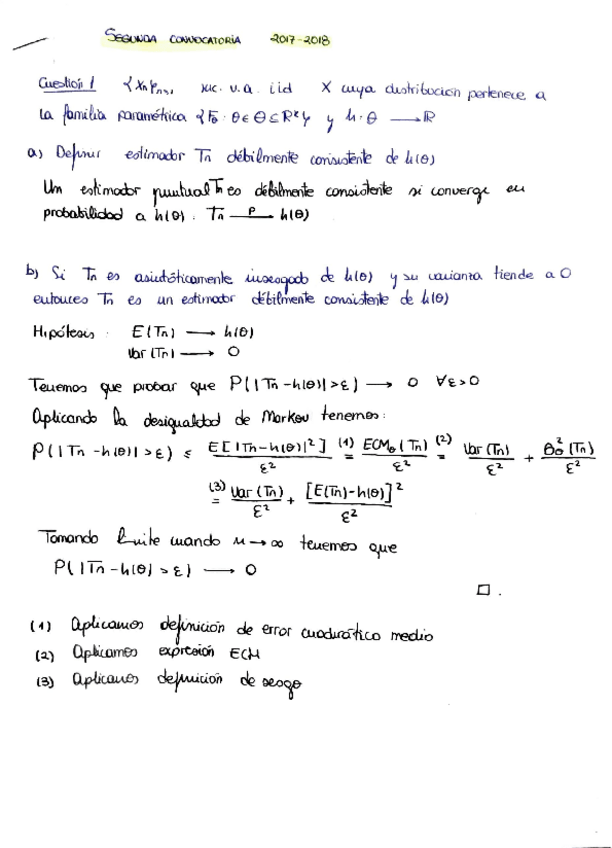 SEGUNDA CONVOCATORIA 2017-2018
Cuestión 1 {Xn}n≥1 suc. v.a. iid X cuya distribución pertenece a
la familia paramétrica {Fθ : θ ∈ Θ ⊆ Rᵏ} y h: Θ → R
a) Definir estimador Tn débilmente consistente de h(θ)
Un estimador puntual Tn es débilmente consistente si converge en
probabilidad a h(θ). Tn —P→ h(θ)
b) Si Tn es asintóticamente insesgado de h(θ) y su varianza tiende a 0
entonces Tn es un estimador débilmente consistente de h(θ)
Hipótesis: E(Tn) → h(θ)
Var(Tn) → 0
Tenemos que probar que P(|Tn-h(θ)|>ε) → 0 ∀ε>0
Aplicando la desigualdad de Markov tenemos:
P(|Tn-h(θ)|>ε) ≤ E[|Tn-h(θ)|²]/ε² (1)= ECMθ(Tn)/ε² (2)= Var(Tn)/ε² + Bθ²(Tn)/ε²
(3)= Var(Tn)/ε² + [E(Tn)-h(θ)]²/ε²
Tomando límite cuando n→∞ tenemos que
P(|Tn-h(θ)>ε) → 0
□.
(1) Aplicamos definición de error cuadrático medio
(2) Aplicamos expresión ECM
(3) Aplicamos definición de sesgo